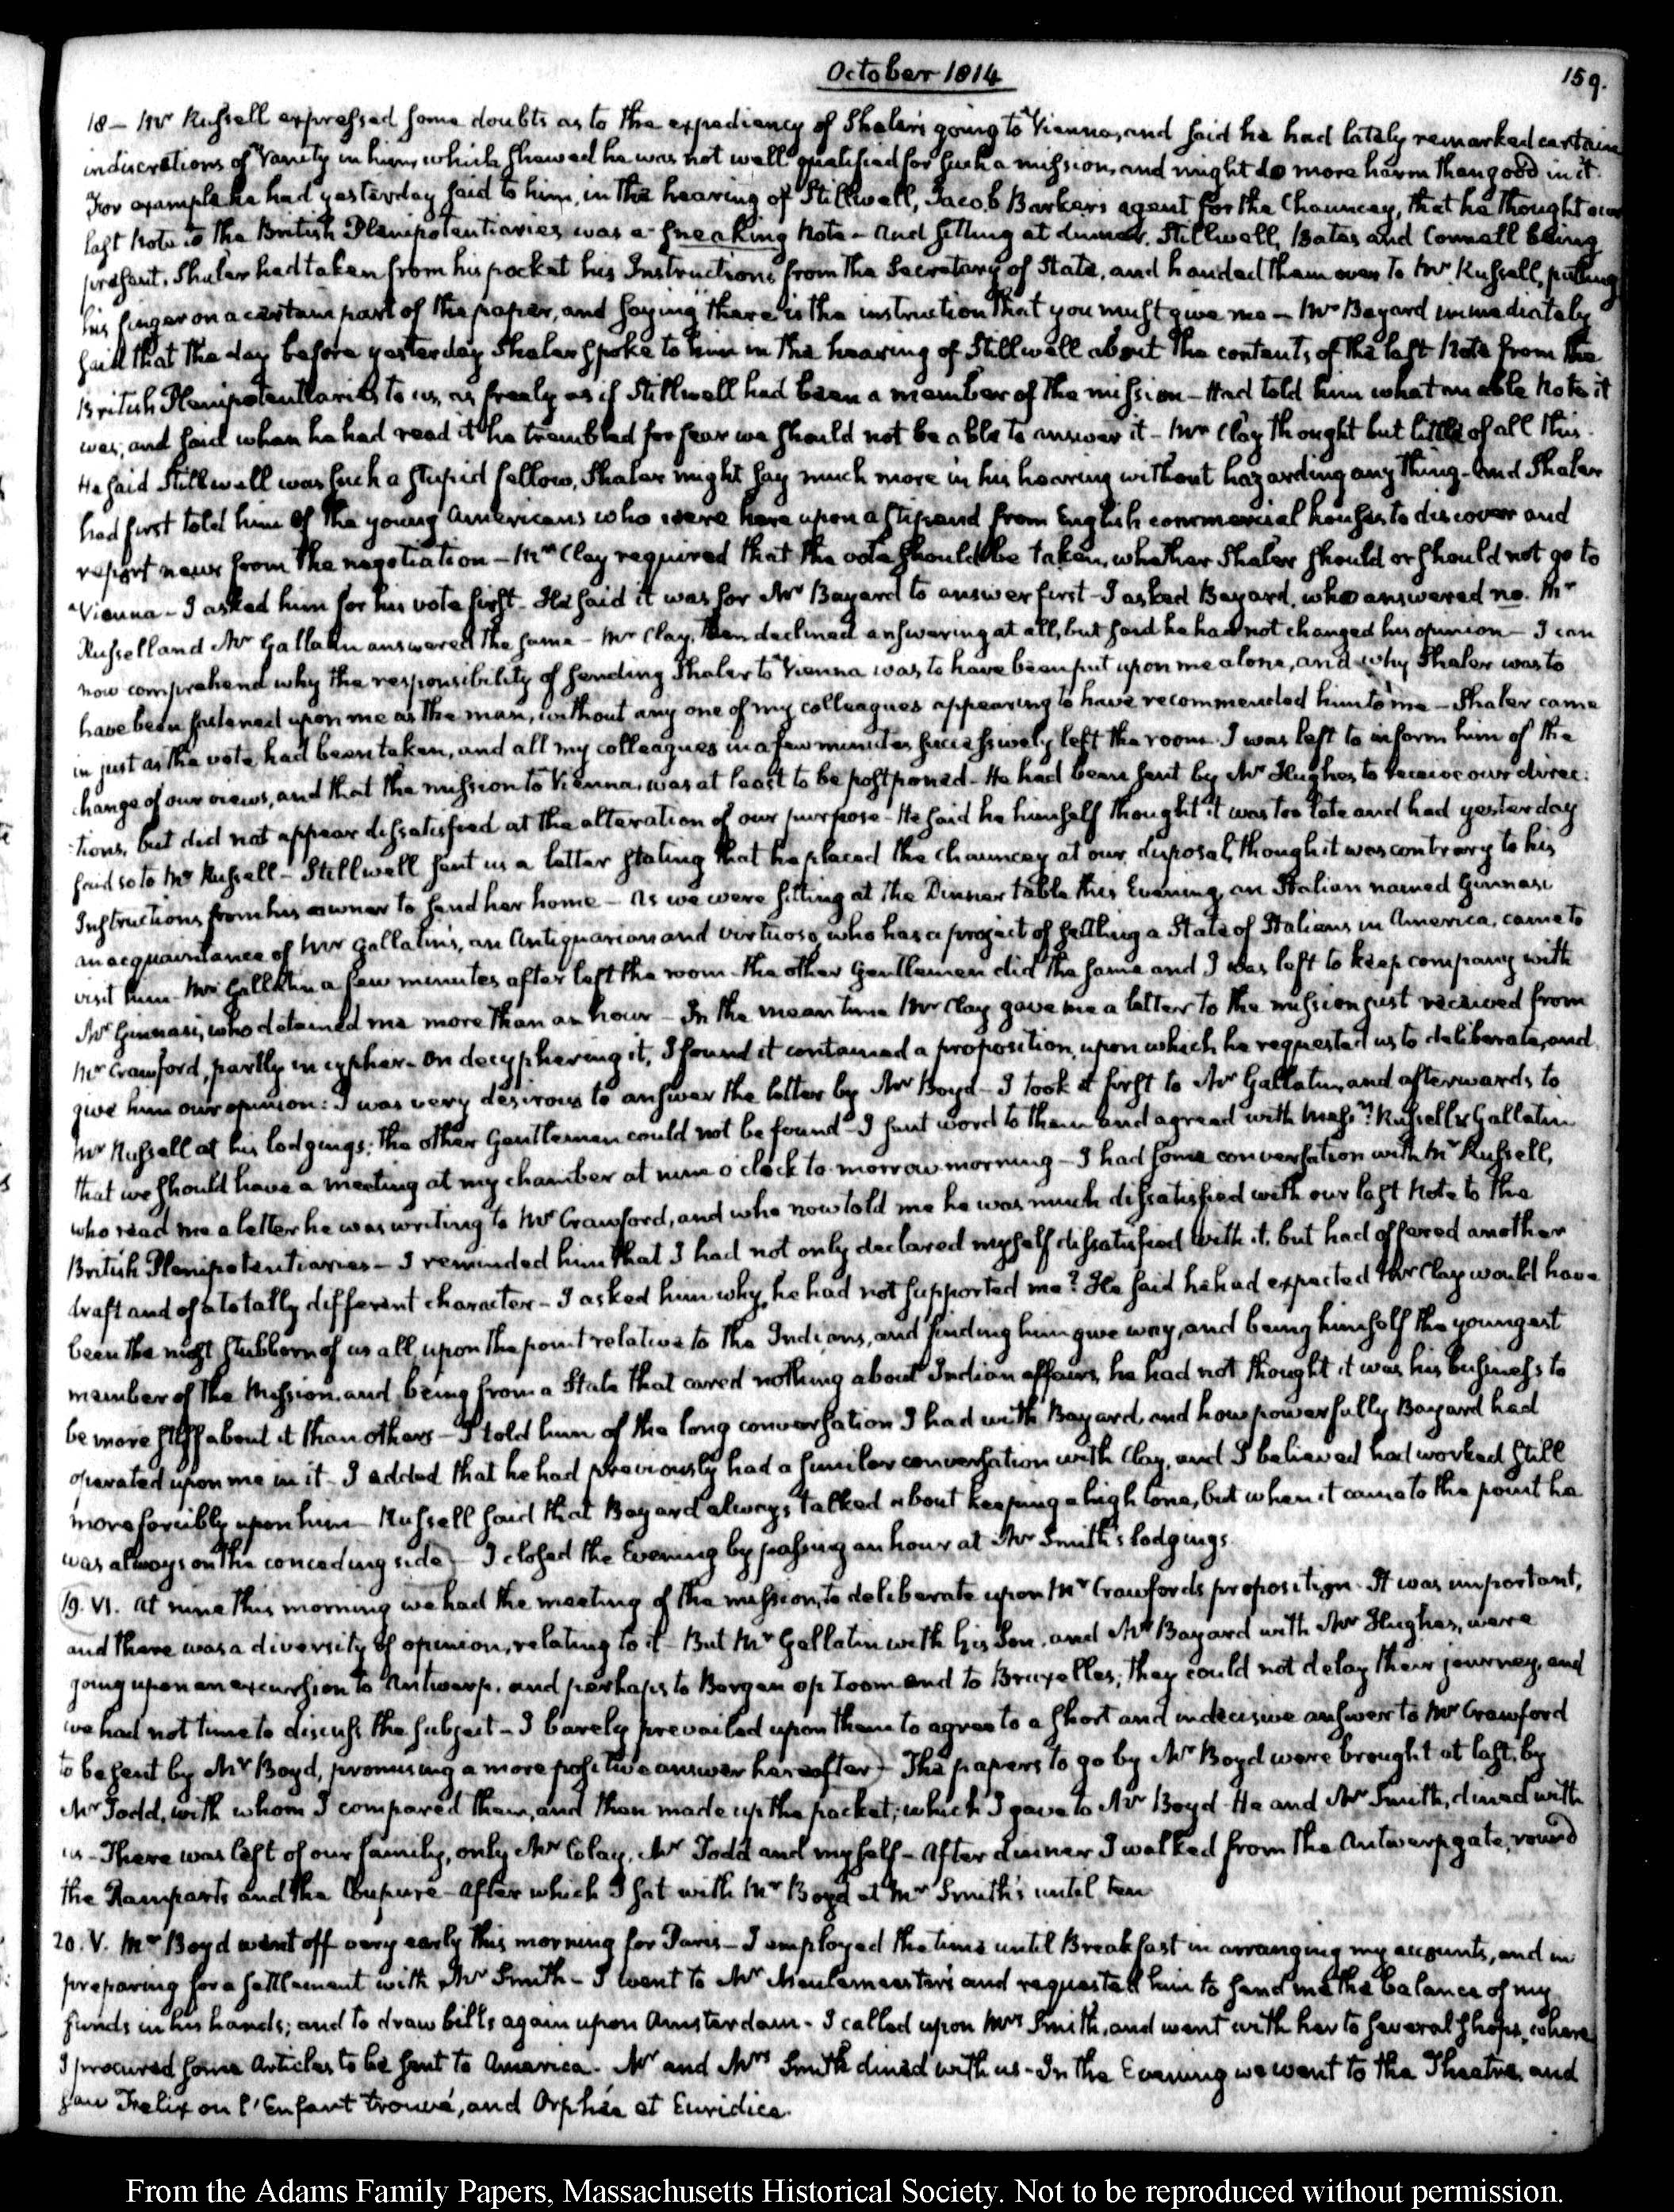 October 1814
159.
18 – Mr Russell expressed some doubts as to the expediency of Shaler's going to Vienna, and said he had lately remarked certain
indiscretions of Vanity in him, which shewed he was not well qualified for such a mission, and might do more harm than good in it.
For example he had yesterday said to him, in the hearing of Stillwell, Jacob Barker's agent for the Chauncey, that he thought our
last Note to the British Plenipotentiaries was a sneaking Note – And sitting at dinner, Stillwell, Bates and Connell being
present, Shaler had taken from his pocket his Instructions from the Secretary of State, and handed them over to Mr Russell, putting
his finger on a certain part of the paper, and saying "there is the instruction that you must give me – Mr Bayard immediately
said that the day before yesterday Shaler spoke to him in the hearing of Stillwell about the contents of the last Note from the
British Plenipotentiaries to us, as freely as if Stillwell had been a member of the mission – Had told him what an able Note it
was; and said when he had read it he trembled for fear we should not be able to answer it – Mr Clay thought but little of all this.
He said Stillwell was such a stupid fellow, Shaler might say much more in his hearing without hazarding any thing – And Shaler
had first told him of the young Americans who were here upon a stipend from English commercial houses to discover and
report news from the negotiation – Mr Clay required that the vote should be taken, whether Shaler should or should not go to
Vienna – I asked him for his vote first – He said it was for Mr Bayard to answer first – I asked Bayard, who answered no. Mr
Russell and Mr Gallatin answered the same – Mr Clay, then declined answering at all, but said he had not changed his opinion – I can
now comprehend why the responsibility of sending Shaler to Vienna was to have been put upon me alone, and why Shaler was to
have been fastened upon me as the man, without any one of my colleagues appearing to have recommended him to me – Shaler came
in just as the vote had been taken, and all my colleagues in a few minutes successively left the room. I was left to inform him of the
change of our views, and that the mission to Vienna, was at least to be postponed – He had been sent by Mr Hughes to receive our direc-
-tions, but did not appear dissatisfied at the alteration of our purpose – He said he himself thought it was too late and had yesterday
said so to Mr Russell – Stillwell sent us a letter stating that he placed the Chauncey at our disposal, though it was contrary to his
Instructions from his owner to send her home – As we were sitting at the Dinner table this Evening, an Italian named Ginnasi
an acquaintance of Mr Gallatin's, an Antiquarian and virtuoso, who has a project of settling a State of Italians in America, came to
visit him – Mr Gallatin a few minutes after left the room – the other Gentlemen did the same and I was left to keep company with
Mr Ginnasi, who detained me more than an hour – In the mean time Mr Clay gave me a letter to the mission just received from
Mr Crawford, partly in cypher – On decyphering it, I found it contained a proposition, upon which he requested us to deliberate, and
give him our opinion: I was very desirous to answer the letter by Mr Boyd – I took it first to Mr Gallatin, and afterwards to
Mr Russell at his lodgings: the other Gentlemen could not be found – I sent word to them and agreed with Messrs Russell & Gallatin
that we should have a meeting at my chamber at nine o'clock to-morrow morning – I had some conversation with Mr Russell,
who read me a letter he was writing to Mr Crawford, and who now told me he was much dissatisfied with our last Note to the
British Plenipotentiaries – I reminded him that I had not only declared myself dissatisfied with it, but had offered another
draft and of a totally different character – I asked him why he had not supported me? He said he had expected Mr Clay would have
been the most stubborn of us all, upon the point relative to the Indians, and finding him give way, and being himself the youngest
member of the Mission, and being from a State that cared nothing about Indian affairs, he had not thought it was his business to
be more stiff about it than others – I told him of the long conversation I had with Bayard, and how powerfully Bayard had
operated upon me in it – I added that he had previously had a similar conversation with Clay, and I believed had worked still
more forcibly upon him – Russell said that Bayard always talked about keeping a high tone, but when it came to the point he
was always on the conceding side – I closed the Evening by passing an hour at Mr Smith's lodgings.
19. VI. At nine this morning we had the meeting of the mission, to deliberate upon Mr Crawford's proposition. It was important,
and there was a diversity of opinion, relating to it – But Mr Gallatin with his Son, and Mr Bayard with Mr Hughes, were
going upon an excursion to Antwerp, and perhaps to Bergen op Zoom and to Bruxelles; they could not delay their journey, and
we had not time to discuss the subject – I barely prevailed upon them to agree to a short and indecisive answer to Mr Crawford
to be sent by Mr Boyd, promising a more positive answer hereafter – The papers to go by Mr Boyd were brought at last, by
Mr Todd, with whom I compared them, and then made up the packet; which I gave to Mr Boyd – He and Mr Smith, dined with
us – There was left of our family, only Mr Clay, Mr Todd and myself – After dinner I walked from the Antwerp gate, round
the Ramparts and the Coupure – After which I sat with Mr Boyd at Mr Smith's until ten
20. V. Mr Boyd went off very early this morning for Paris – I employed the time until Breakfast in arranging my accounts, and in
preparing for a settlement with Mr Smith – I went to Mr Meulemeester's and requested him to send me the balance of my
funds in his hands; and to draw bills again upon Amsterdam – I called upon Mrs Smith, and went with her to several shops, where
I procured some Articles to be sent to America – Mr and Mrs Smith dined with us – In the Evening we went to the Theatre, and
saw Felix ou l'Enfant trouvé, and Orphée et Euridice.
From the Adams Family Papers, Massachusetts Historical Society. Not to be reproduced without permission.